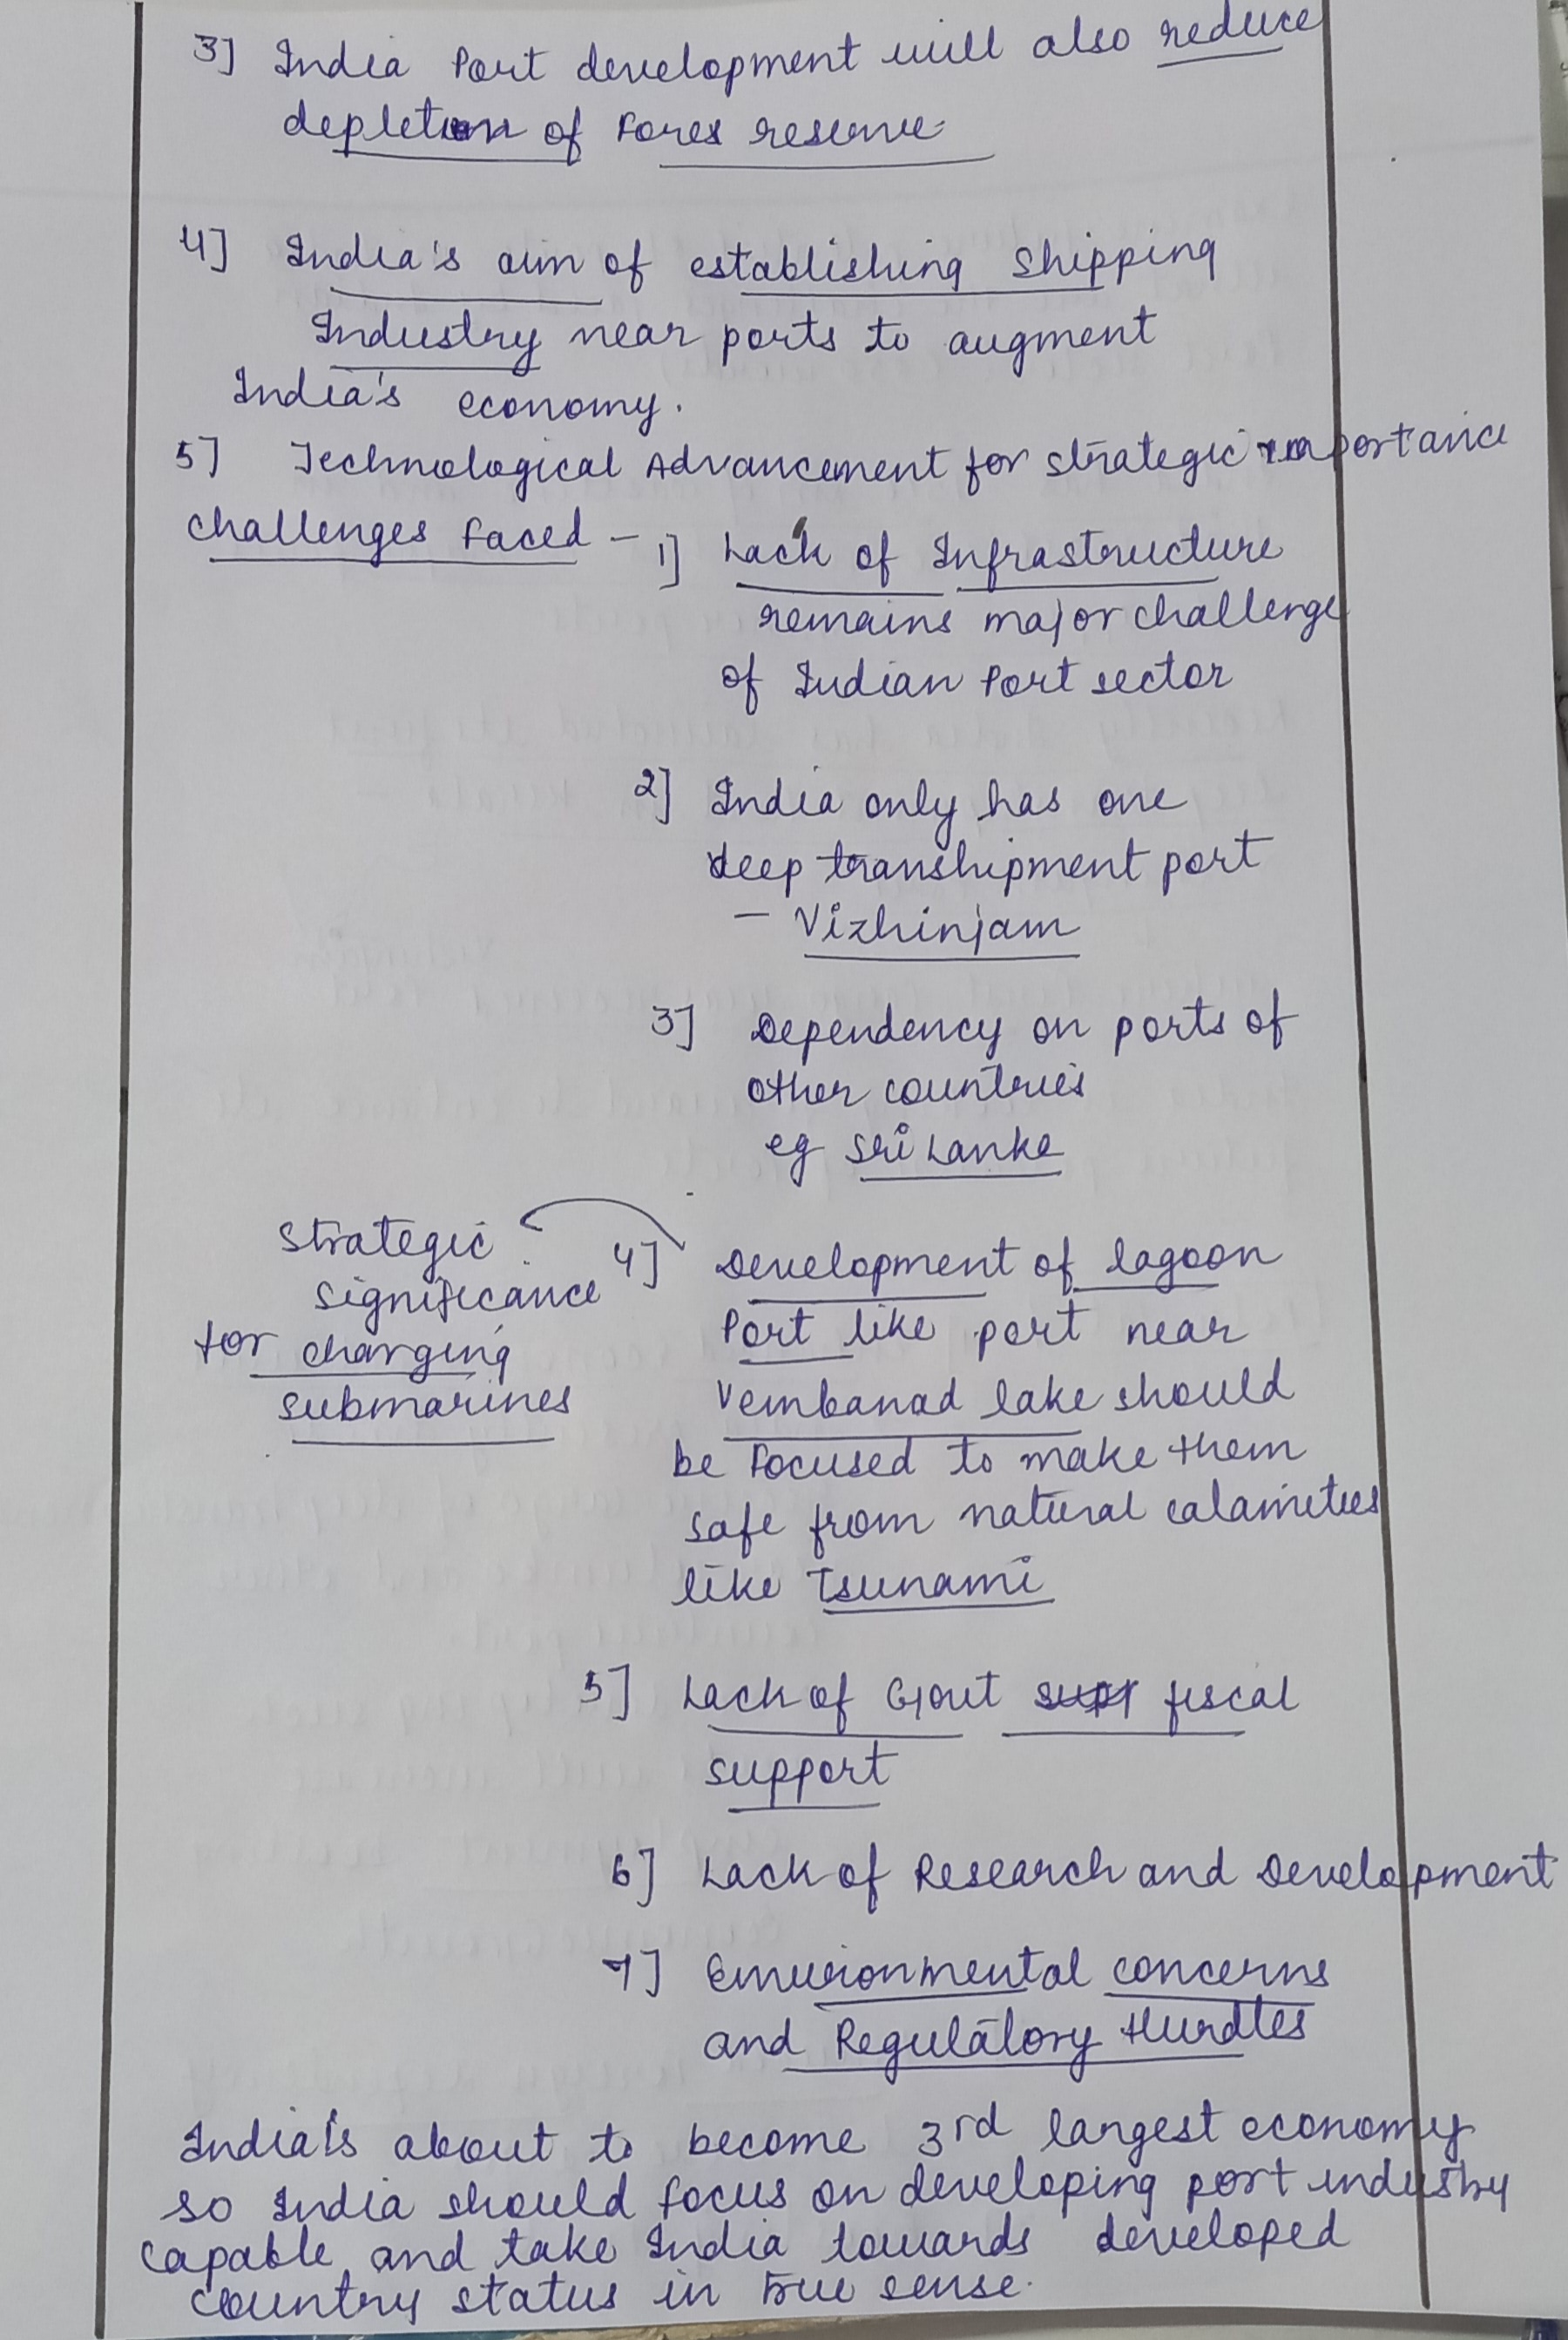 3] India Port development will also reduce
depletion of Forex reserve
4] India's aim of establishing shipping
Industry near ports to augment
India's economy.
5] Technological Advancement for strategic importance
challenges faced - 1] Lack of Infrastructure
remains major challenge
of Indian Port sector
2] India only has one
deep transhipment port
- Vizhinjam
3] Dependency on ports of
other countries
eg Sri Lanka
4] Development of lagoon
Port like port near
Vembanad lake should
be focused to make them
safe from natural calamities
like Tsunami
Strategic
significance
for charging
submarines
5] Lack of Govt fiscal
support
6] Lack of Research and Development
7] Environmental concerns
and Regulatory Hurdles
India is about to become 3rd largest economy
so India should focus on developing port industry
capable and take India towards developed
country status in true sense.